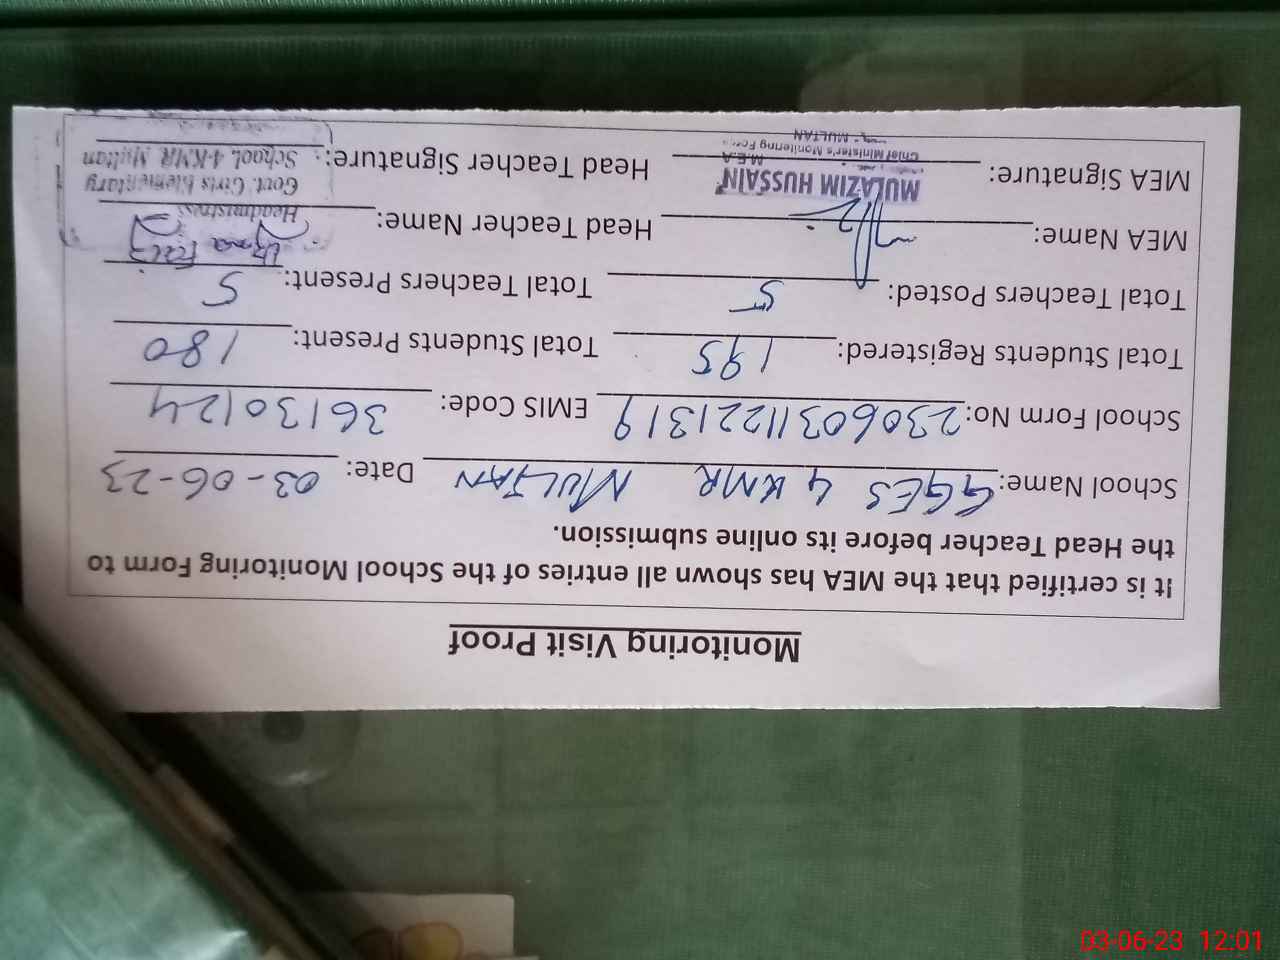 Monitoring Visit Proof
It is certified that the MEA has shown all entries of the School Monitoring Form to
the Head Teacher before its online submission.
School Name: GGES 4 KMR MULTAN Date: 03-06-23
School Form No: 2306031122131 9 EMIS Code: 36130124
Total Students Registered: 195 Total Students Present: 180
Total Teachers Posted: 5 Total Teachers Present: 5
MEA Name: Head Teacher Name:
MULAZIM HUSSAIN
M.E.A
Chief Minister's Monitoring Force
MULTAN
Headmistress
Govt. Girls Elementary
School, 4-KMR Multan
MEA Signature: Head Teacher Signature:
03-06-23 12:01